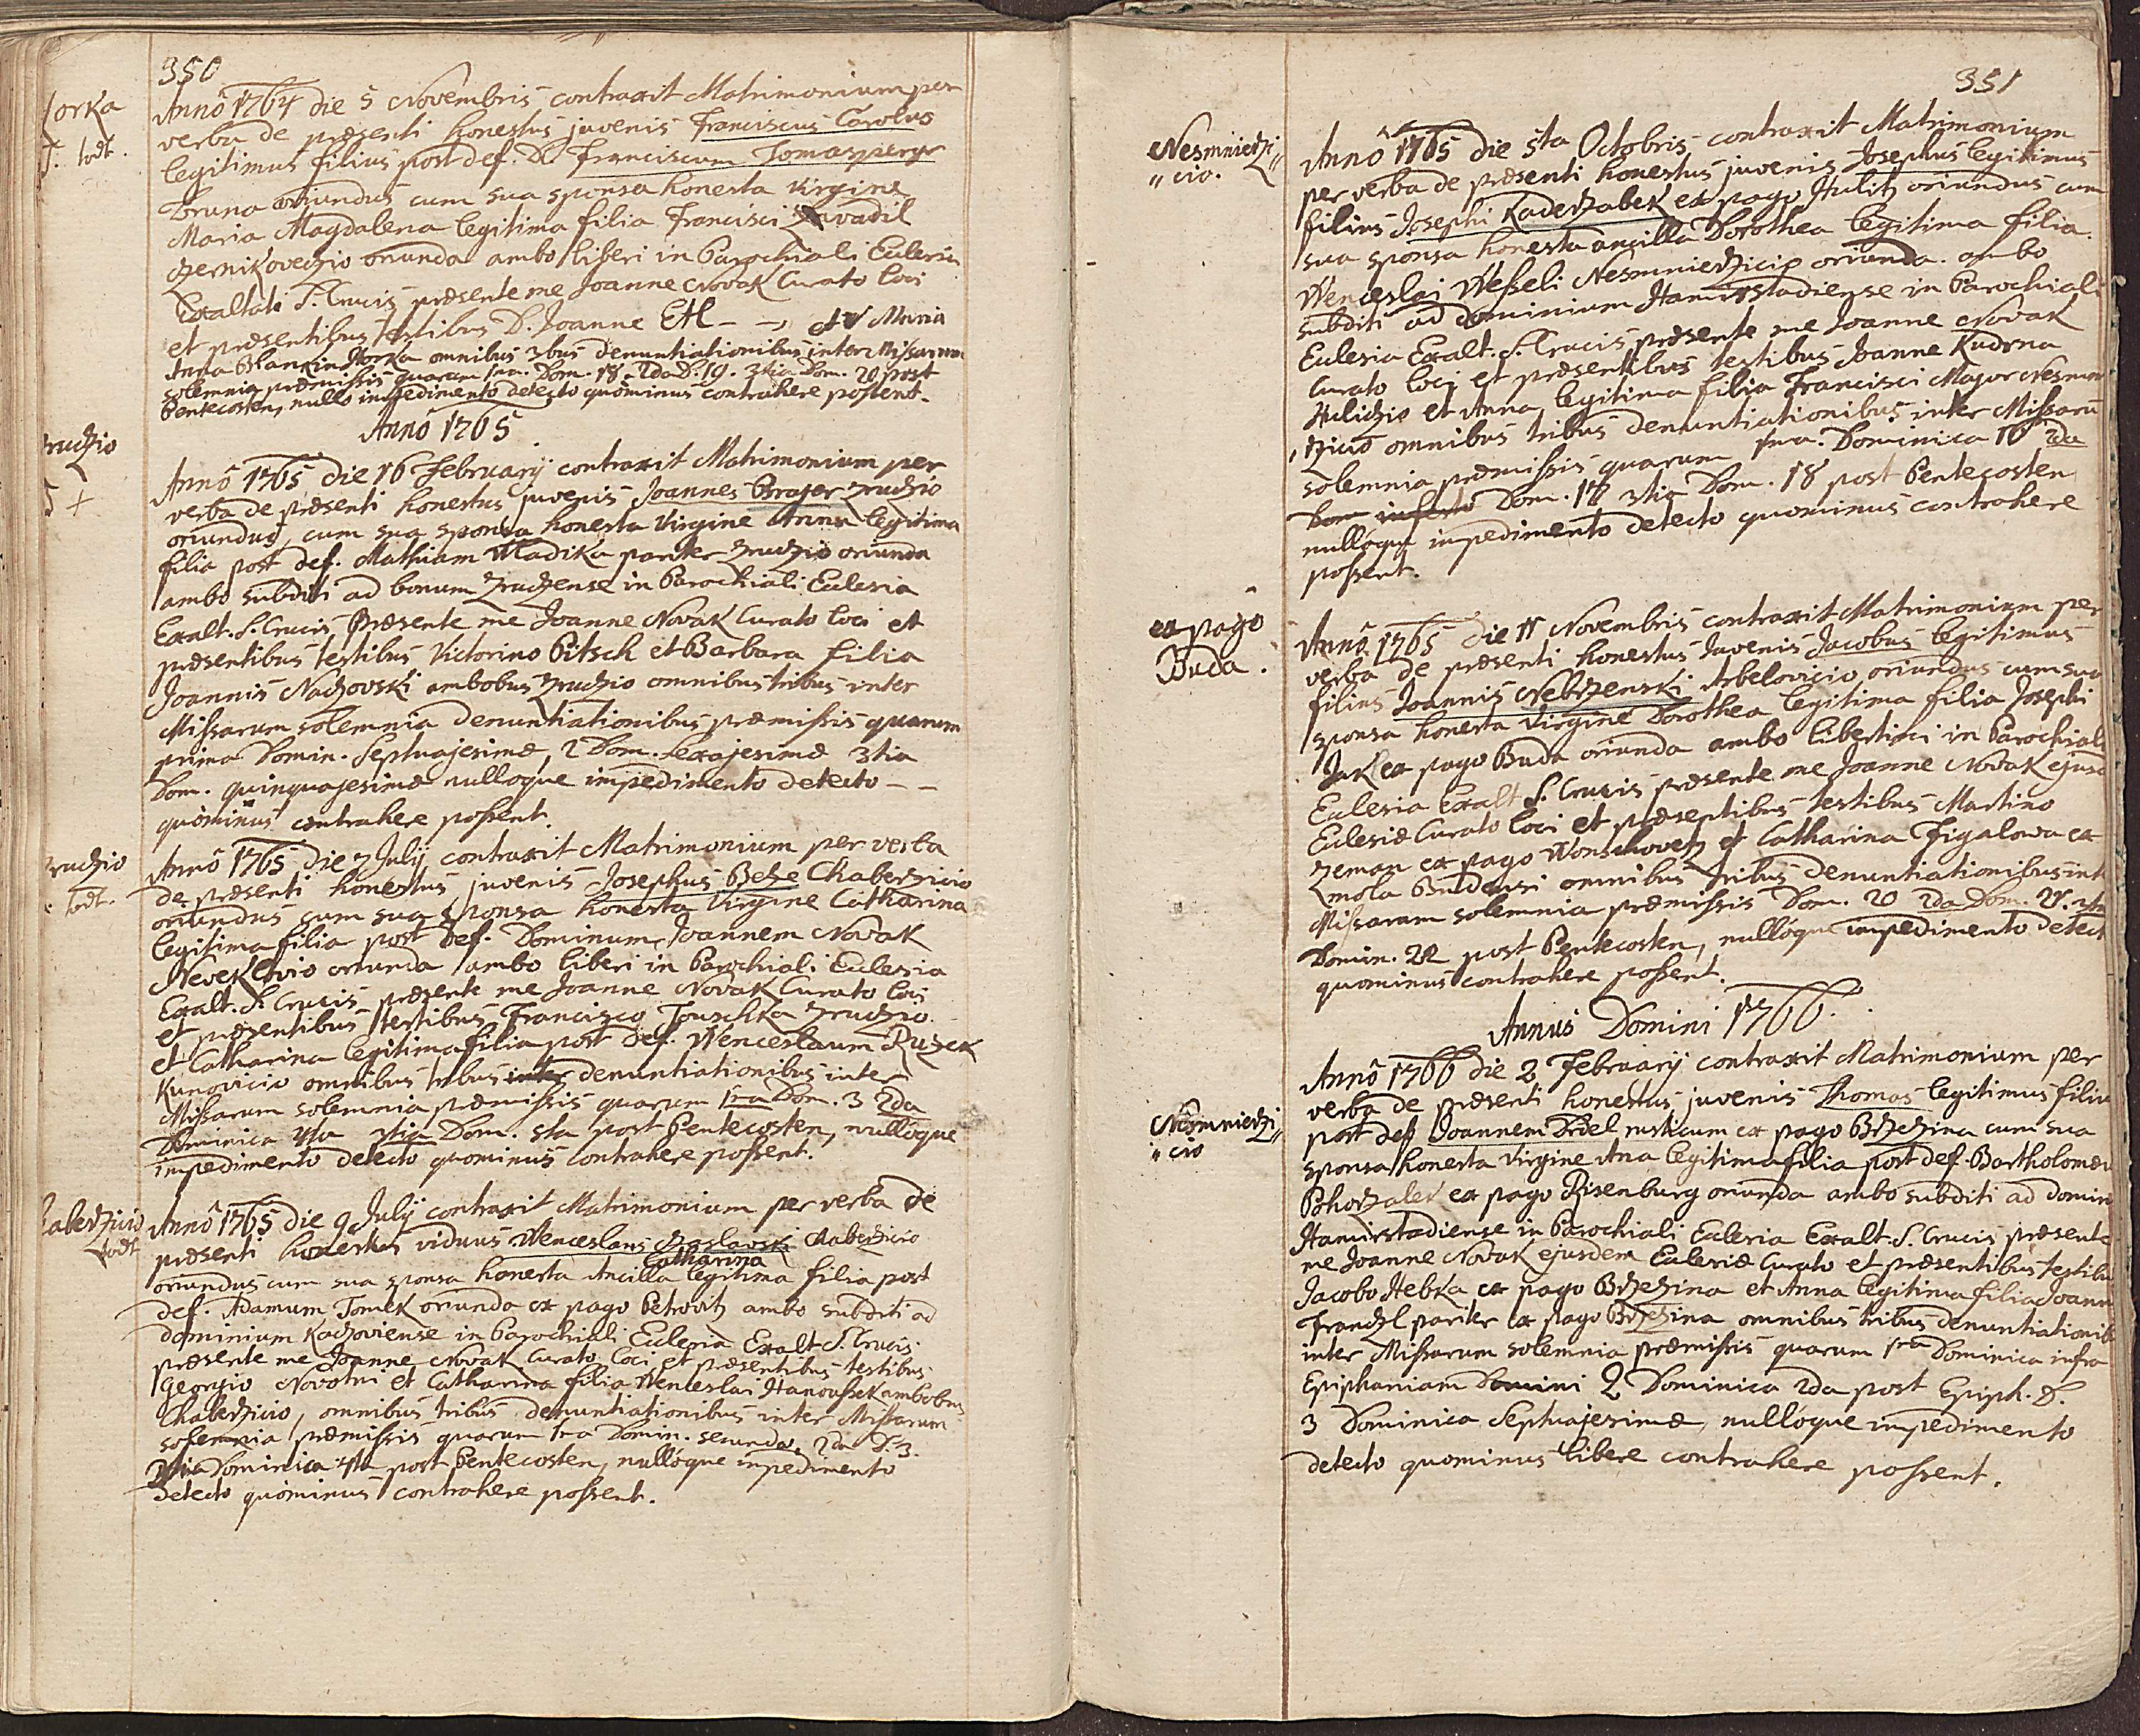 350
Jorka
J. todt.
Anno 1764 die 5 Novembris contraxit Matrimonium per
verba de præsenti honestus juvenis Franciscus Carolus
legitimus filius post def. D. Franciscum Tomasperge
Bruna oriundus cum sua sponsa honesta virgine
Maria Magdalena legitima filia Francisci Zavadil
Czernikovedzio oriunda ambo liberi in Parochiali Eclesia
Exaltatæ S. Crucis præsente me Joanne Novak Curato loci
et præsentibus testibus D. Joanne Etl - - et V Maria
Anna Blankin Horka omnibus 3bus denuntiationibus inter Missarum
solemnia præmissis quarum 1ma. Dom. 18. 2da D. 19. 3tia Dom. 20 post
Pentecosten, nullo impedimento detecto quominus contrahere possent.
Anno 1765
zrudzio
+
Anno 1765 die 16 February contraxit Matrimonium per
verba de præsenti honestus juvenis Joannes Brajer zrudzio
oriundus, cum sua sponsa honesta Virgine Anna legitima
filia post def. Mathiam Wladika pariter zrudzio oriunda
ambo subditi ad bonum zrudzense in Parochiali Eclesia
Exalt. S. Crucis Præsente me Joanne Novak Curato loci et
præsentibus testibus Victorino Pitsch et Barbara filia
Joannis Nadzovski ambobus zrudzio omnibus tribus inter
Missarum solemnia denuntiationibus præmissis quarum
prima Domin. Septuajesimæ, 2 Dom. Sexajesimæ 3tia
Dom. quinquajesimæ nulloque impedimento detecto - -
quominus contrahere possent.
zrudzio
todt.
Anno 1765 die 7 July contraxit Matrimonium per verba
de præsenti honestus juvenis Josephus Beze Chaberzicio
oriundus cum sua sponsa honesta Virgine Catharina
legitima filia post def. Dominum Joannem Novak
Neveklovio oriunda ambo liberi in Parochiali Eclesia
Exalt. S. Crucis præsente me Joanne Novak Curato loci
et præsentibus testibus Francisco Jouschka zrudzio
et Catharina legitima filia post def. Wenceslaum Ruzek
Kunovicio omnibus tribus inter denuntiationibus inter
Missarum solemnia præmissis quarum 1ma Dom. 3 2da
Dominica 4ta 3tia Dom. 5ta post Pentecosten, nulloque
impedimento detecto quominus contrahere possent.
Chaberzicio
todt
Anno 1765 die 9 July contraxit Matrimonium per verba de
præsenti honestus viduus Wenceslaus Czaslavski Chaberzicio
Catharina
oriundus cum sua sponsa honesta Ancilla legitima filia post
def. Adamum Tomek oriunda ex pago Petrovitz ambo subditi ad
dominium Kadzoviense in Parochiali Eclesia Exalt S. Crucis
præsente me Joanne Novak Curato loci et præsentibus testibus
Georgio Novotni et Catharina filia Wenceslai Hanoussek ambobus
Chaberzicio, omnibus tribus denuntiationibus inter Missarum
solemnia præmissis quarum 1ma Domin. secunda, 2da D. 3.
3tia Dominica 4ta post Pentecosten, nulloque impedimento
detecto quominus contrahere possent.
351
Nesmniedzi
"cio.
Anno 1765 die 5ta Octobris contraxit Matrimonium
per verba de præsenti honestus juvenis Josephus legitimus
filius Josephi Kaderzabek ex pago Hulitz oriundus cum
sua sponsa honesta ancilla Dorothea legitima filia
Wenceslai Wesseli Nesmniedzicio oriunda. ambo
subditi ad dominium Hamrstadiense in Parochiali
Eclesia Exalt. S. Crucis præsente me Joanne Novak
Curato loci et præsentibus testibus Joanne Kudrna
Hulidzio et Anna legitima filia Francisci Major Nesmn
dzicio omnibus tribus denuntiationibus inter Missaru
solemnia præmissis quarum 1ma. Dominica 16 2da
Dom infesto Dom. 17 3tia Dom. 18 post Pentecosten
nulloque impedimento detecto quominus contrahere
possent.
ex pago
Buda.
Anno 1765 die 11 Novembris contraxit Matrimonium per
verba de præsenti honestus Juvenis Jacobus legitimus
filius Joannis Nebrzenski Arbelovicio oriundus cum sua
sponsa honesta virgine Dorothea legitima filia Josephi
Jakl ex pago Buda oriunda ambo libertini in Parochiali
Eclesia Exalt S. Crucis præsente me Joanne Novak ejusd
Eclesiæ Curato loci et præsentibus testibus Martino
Zeman ex pago Wonschovetz et Catharina Figalowa ex
mola Budensi omnibus tribus denuntiationibus int
Missarum solemnia præmissis Dom. 20 2da Dom. 21. 3tia
Domin. 22 post Pentecosten, nulloque impedimento detect
quominus contrahere possent.
Annus Domini 1766.
Nesmniedzi
"cio
Anno 1766 die 2 February contraxit Matrimonium per
verba de præsenti honestus juvenis Thomas legitimus filiu
post def Joannem Drdel rusticum ex pago Brzezina cum sua
sponsa honesta Virgine Ana legitima filia post def. Bartholomæu
Pohorzalek ex pago Risenburg oriunda ambo subditi ad domin
Hamrstadiense in Parochiali Eclesia Exalt. S. Crucis præsente
me Joanne Novak ejusdem Eclesiæ Curato et præsentibus testibu
Jacobo Hebka ex pago Brzezina et Anna legitima filia Joann
Frandzl pariter ex pago Brzezina omnibus tribus denuntiationib
inter Missarum solemnia præmissis quarum 1ma Dominica infra
Epiphaniam Domini 2 Dominica 2da post Epiph. D.
3 Dominica Septuajesimæ, nulloque impedimento
detecto quominus libere contrahere possent.